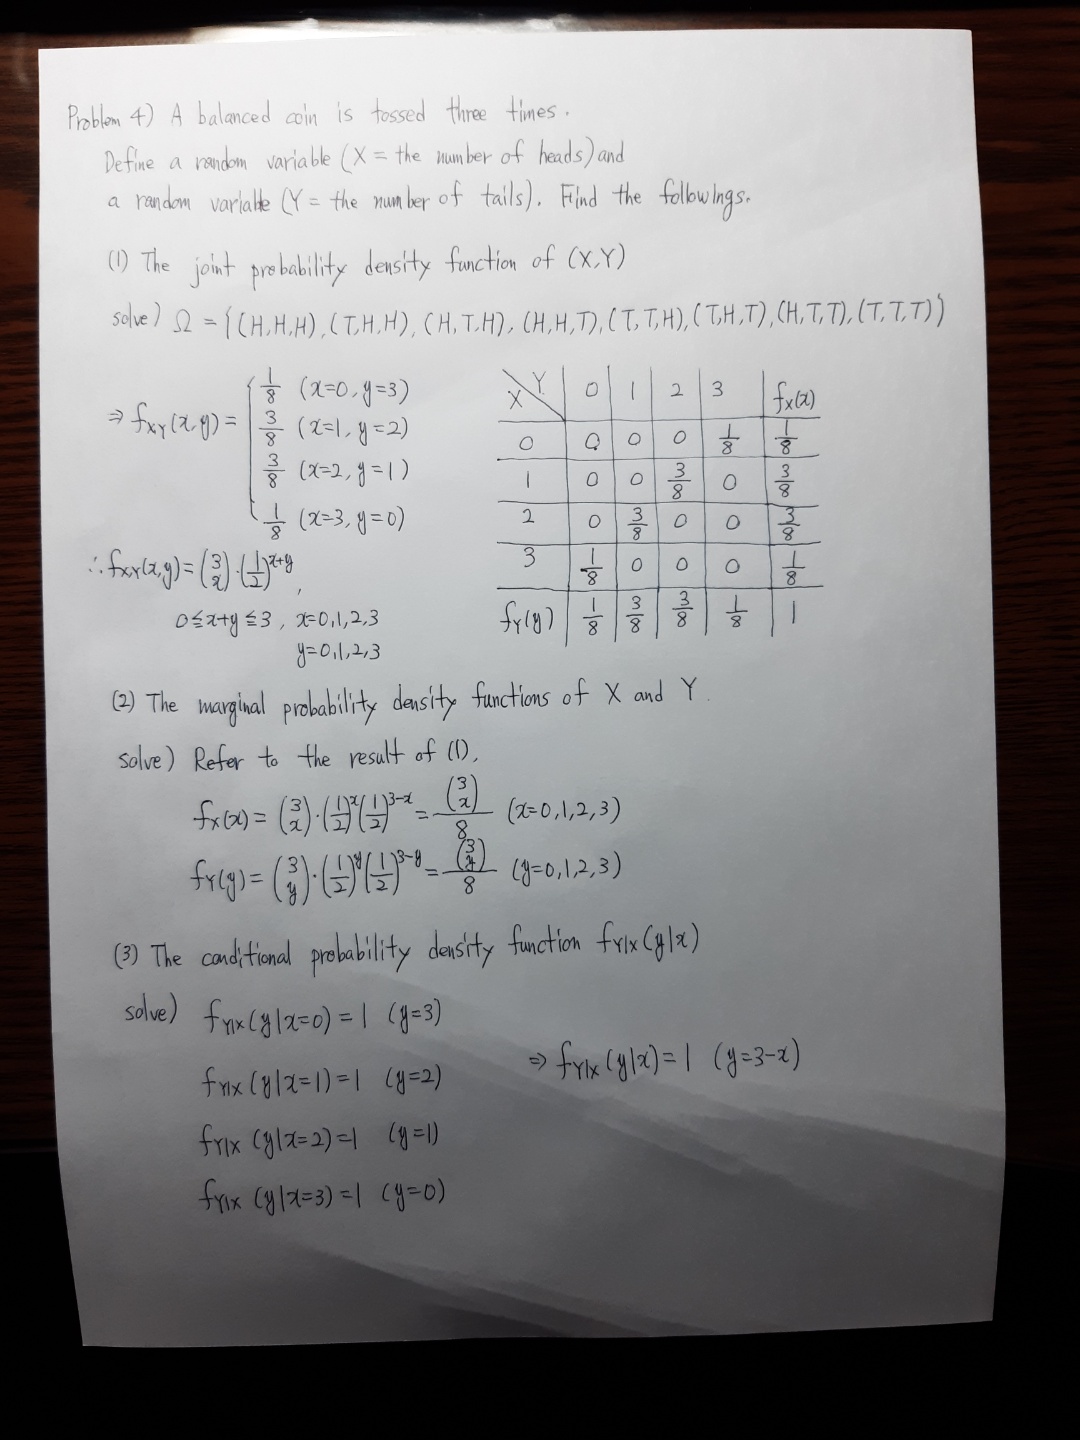 Problem 4) A balanced coin is tossed three times.
Define a random variable (X = the number of heads) and
a random variable (Y = the number of tails). Find the followings.
(1) The joint probability density function of (X,Y)
solve) Ω = {(H,H,H), (T,H,H), (H,T,H), (H,H,T), (T,T,H), (T,H,T), (H,T,T), (T,T,T)}
⇒ f_XY(x,y) = { 1/8 (x=0, y=3)
3/8 (x=1, y=2)
3/8 (x=2, y=1)
1/8 (x=3, y=0)
∴ f_X,Y(x,y) = (3 x)·(1/2)^x+y,
0≤x+y≤3, x=0,1,2,3
y=0,1,2,3
X\Y 0 1 2 3 f_X(x)
0 0 0 0 1/8 1/8
1 0 0 3/8 0 3/8
2 0 3/8 0 0 3/8
3 1/8 0 0 0 1/8
f_Y(y) 1/8 3/8 3/8 1/8 1
(2) The marginal probability density functions of X and Y.
solve) Refer to the result of (1),
f_X(x) = (3 x)·(1/2)^x(1/2)^3-x = (3 x)/8 (x=0,1,2,3)
f_Y(y) = (3 y)·(1/2)^y(1/2)^3-y = (3 y)/8 (y=0,1,2,3)
(3) The conditional probability density function f_Y|X(y|x)
solve) f_Y|X(y|x=0) = 1 (y=3)
f_Y|X(y|x=1) = 1 (y=2)
f_Y|X(y|x=2) = 1 (y=1)
f_Y|X(y|x=3) = 1 (y=0)
⇒ f_Y|X(y|x) = 1 (y=3-x)